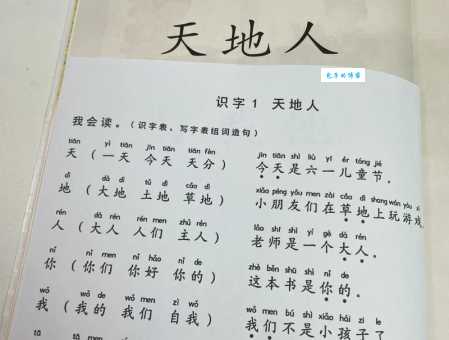 天地人
识字1 天地人
我会读。(识字表、写字表组词造句)
tiān yì tiān jīn tiān tiān fèn
天(一天 今天 天分)
jīn tiān shì liù yī ér tóng jié
今天是六一儿童节。
dì dà dì tǔ dì cǎo dì
地(大地 土地 草地)
xiǎo péng yǒu men zài cǎo dì shang wán yóu xì
小朋友们在草地上玩游戏
rén dà rén rén men zhǔ rén
人(大人 人们 主人)
lǎo shī shì yí gè dà rén
老师是一个大人。
nǐ nǐ men nǐ hǎo nǐ de
你(你们 你好 你的)
zhè běn shū shì nǐ de
这本书是你的。
wǒ wǒ de wǒ men zì wǒ
我(我的 我们 自我)
wǒ men bú shì xiǎo hái zi le
我们不是小孩子了
tā tā men